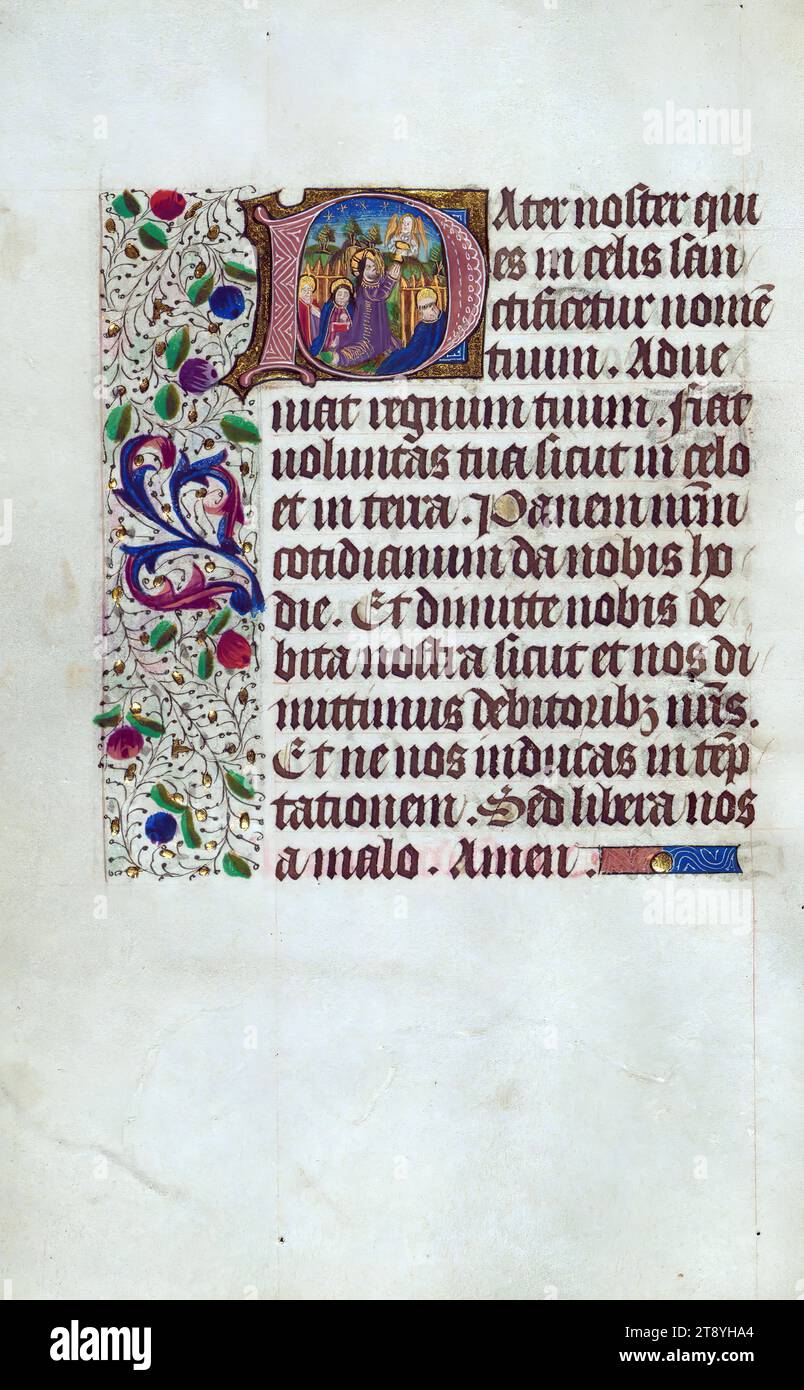 PAter noster qui
es in celis san
ctificetur nomē
tuum. Adue
niat regnum tuum. Fiat
uoluntas tua sicut in celo
et in terra. Panem nr̄m
cotidianum da nobis ho
die. Et dimitte nobis de
bita nostra sicut et nos di
mittimus debitoribꝫ nr̄is.
Et ne nos inducas in tēp
tationem. Sed libera nos
a malo. Amen.
alamy
alamy
alamy
alamy
Image ID: T8YHA4
www.alamy.com